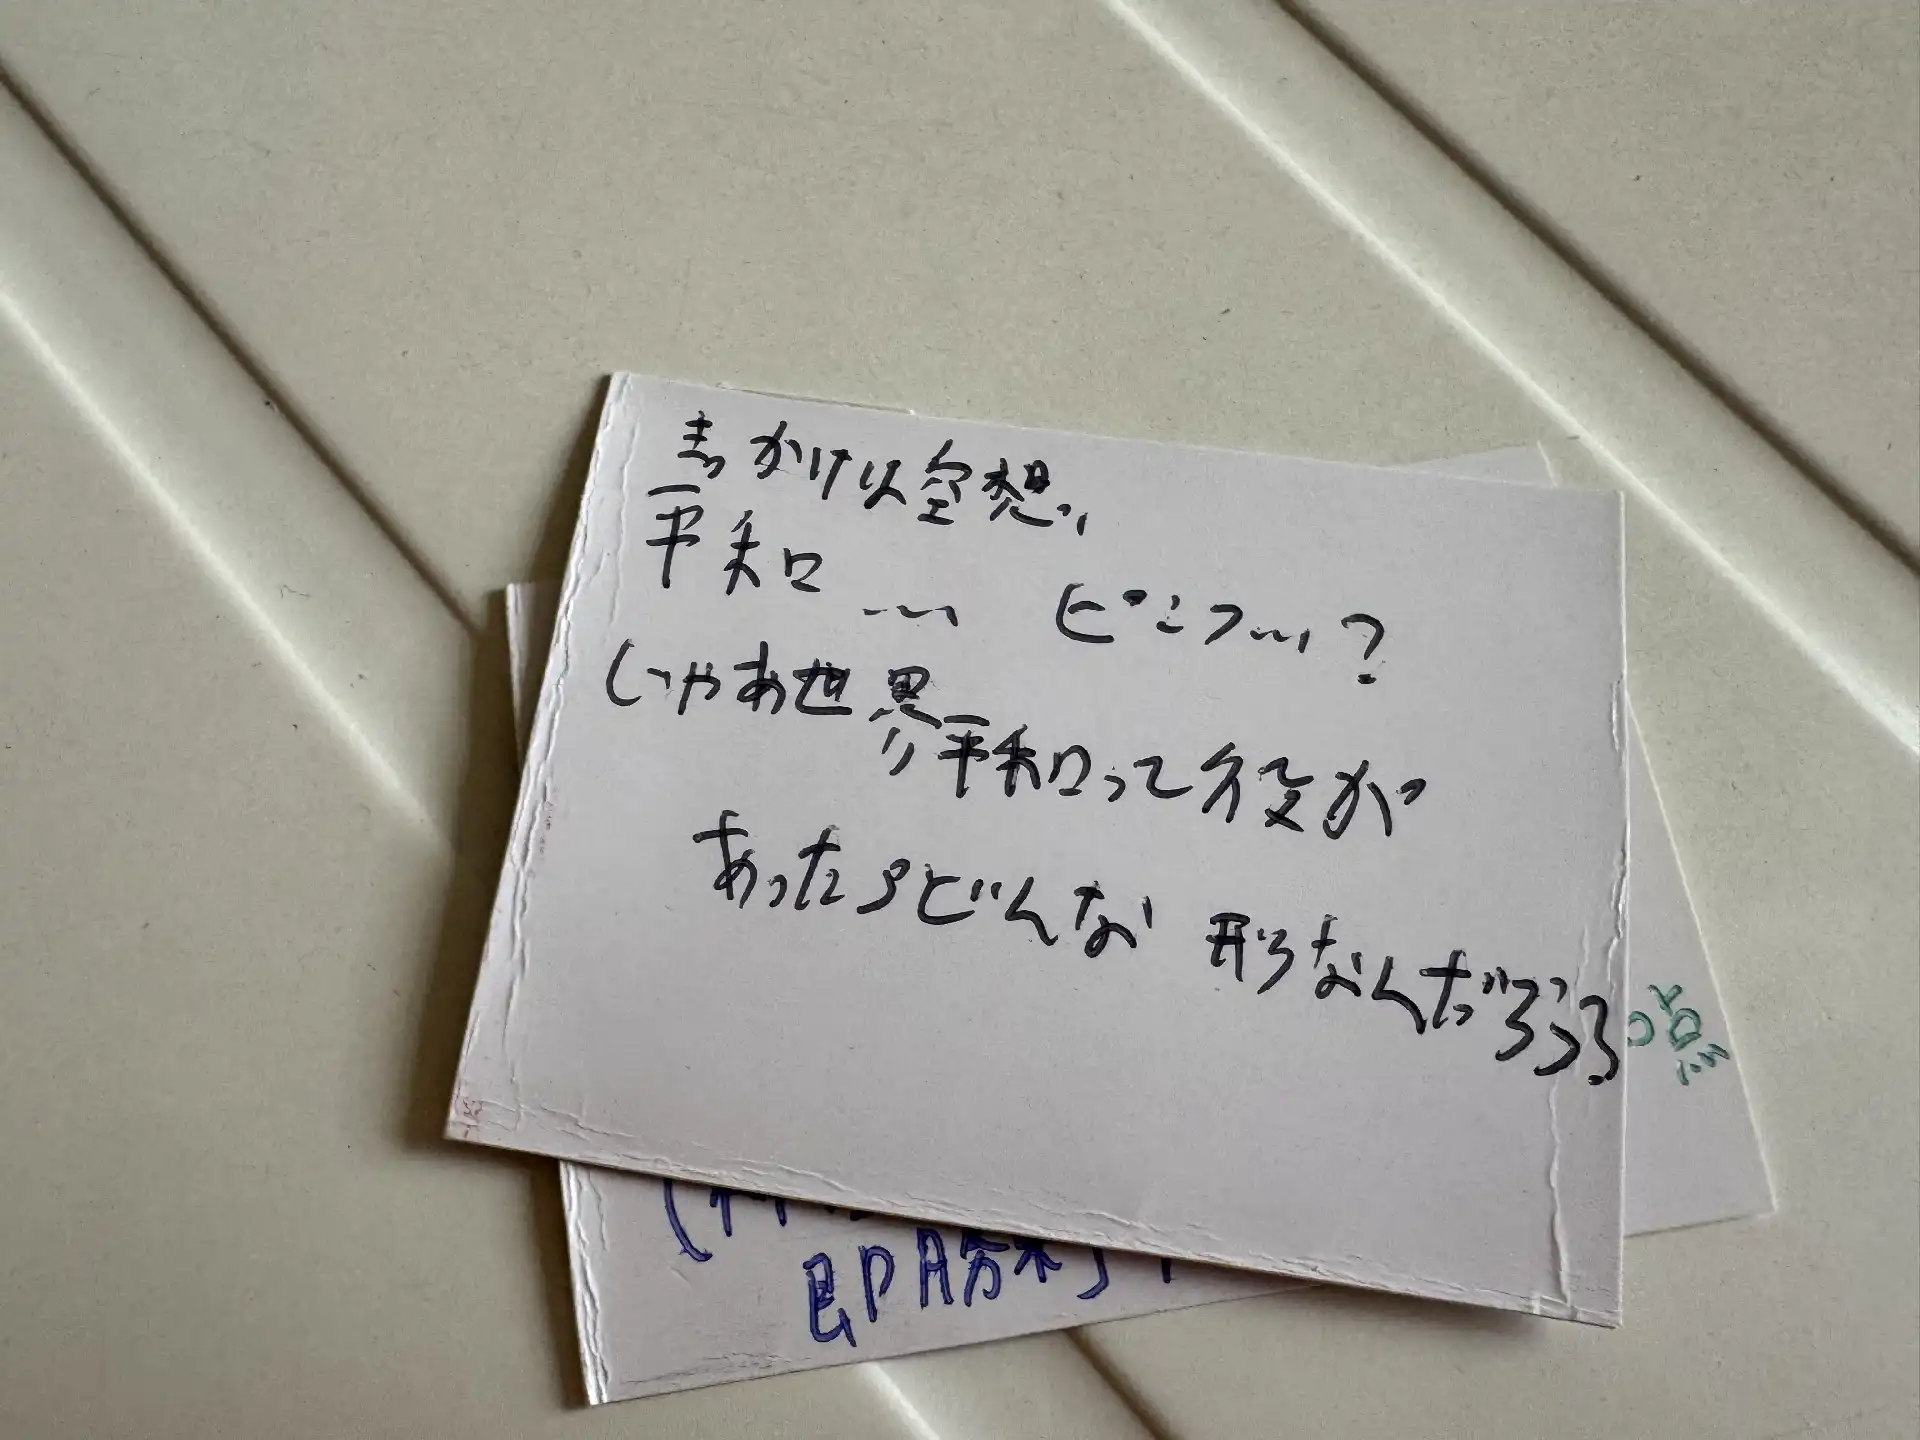 まっかけは空想、
平和…… ピンフ…?
じゃあ世界平和って役が
あったらどんな 形なんだろうろ
即勝利